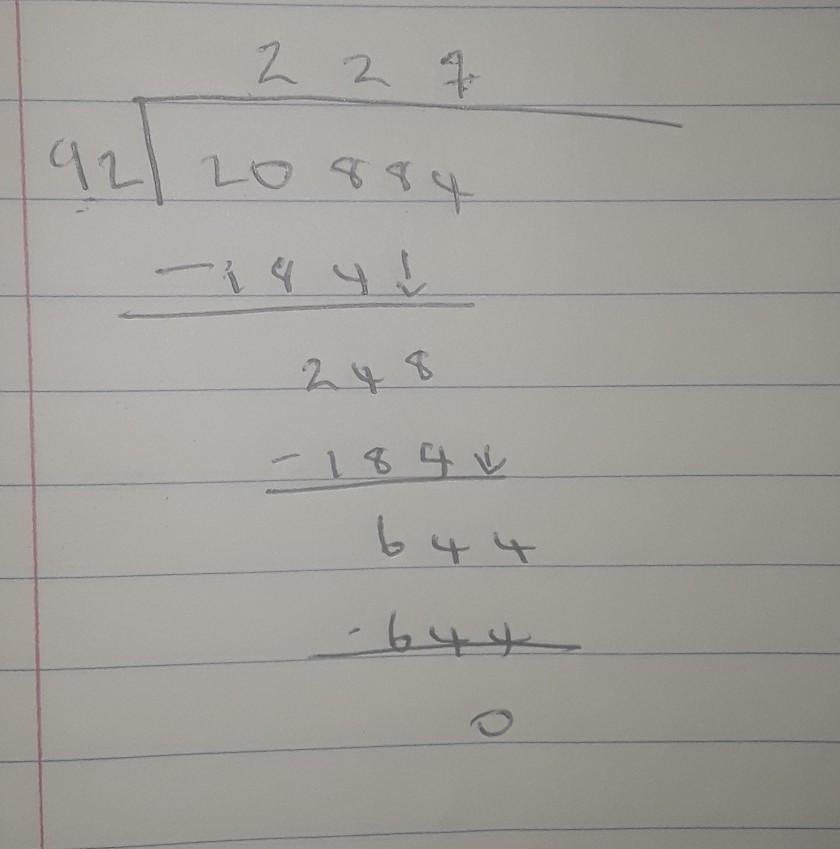 2 2 7
92 20 8 8 4
- 1 8 4 ↓
2 4 8
- 1 8 4 ↓
6 4 4
- 6 4 4
0